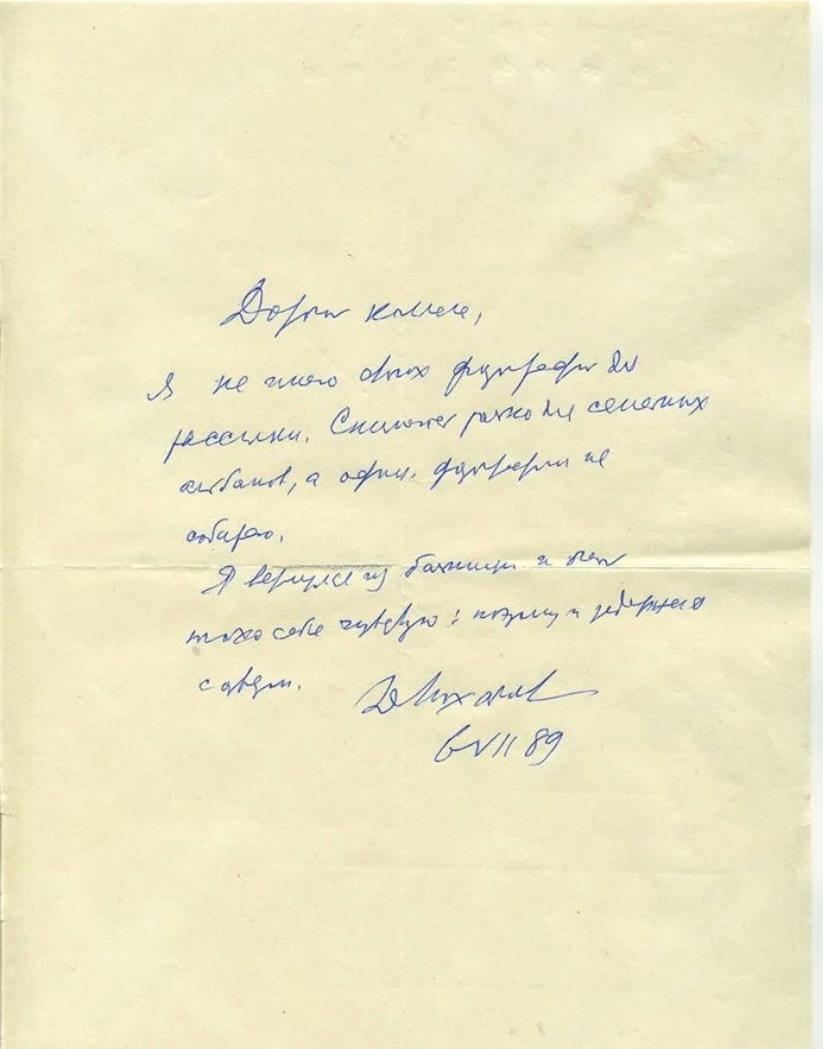 Дорогой коллега,
Я не имею своих фотографий для
рассылки. Снимают только для семейных
альбомов, а офиц. фотографии не
собираю.
Я вернулся из больницы и
плохо себя чувствую: поэтому и задержался
с ответом.
Д Лихачев
6 VII 89